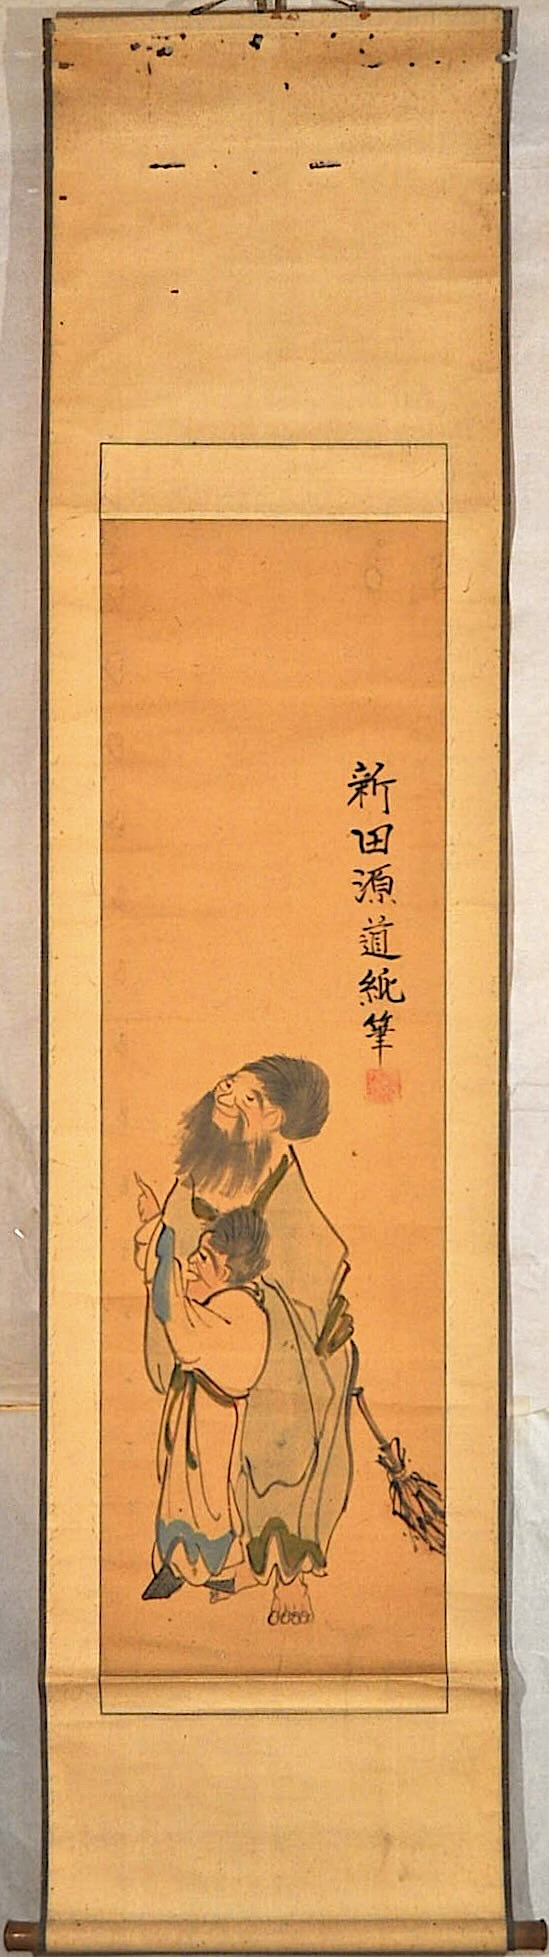 新田源道紙筆